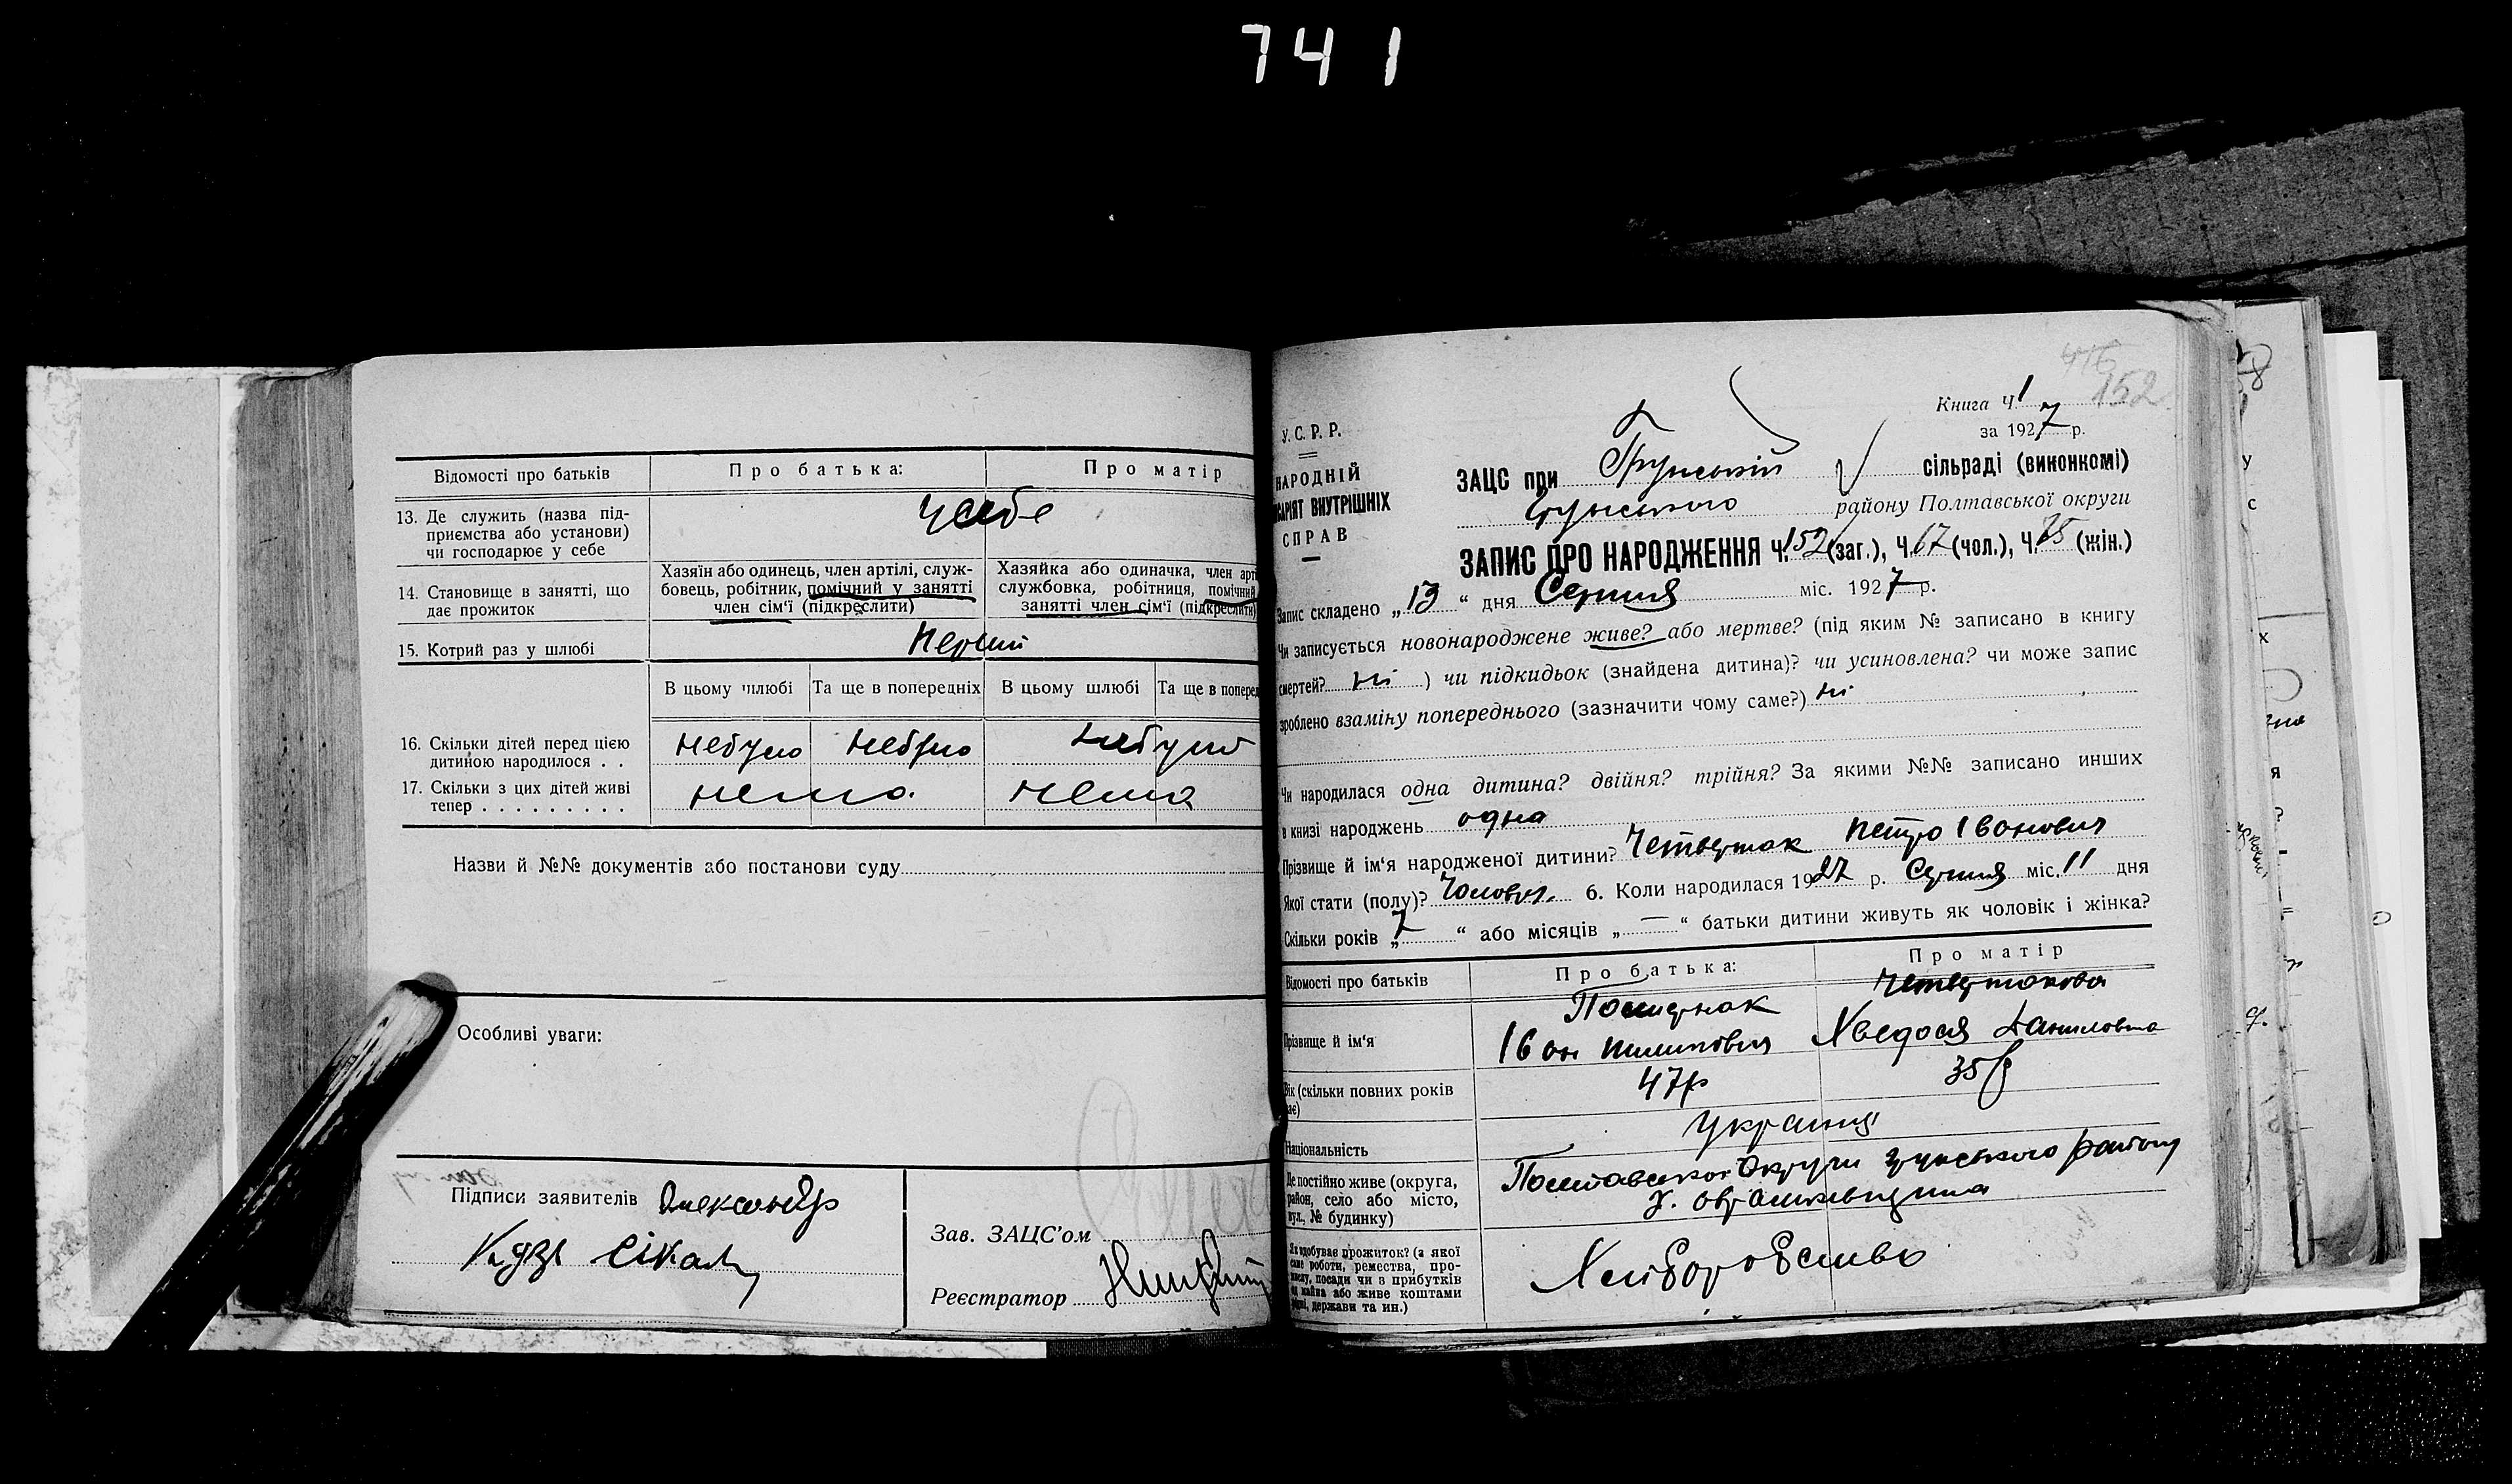 741
Відомості про батьків
Про батька:
Про матір
13. Де служить (назва під-
приємства або установи)
чи господарює у себе
у себе
14. Становище в занятті, що
дає прожиток
Хазяїн або одинець, член артілі, служ-
бовець, робітник, помічний у занятті
член сім'ї (підкреслити)
Хазяйка або одиначка, член арті
службовка, робітниця, помічний
занятті член сім'ї (підкреслити)
15. Котрий раз у шлюбі
Перший
В цьому шлюбі
Та ще в попередніх
В цьому шлюбі
Та ще в поперед
16. Скільки дітей перед цією
дитиною народилося . .
небуло
небуло
небуло
17. Скільки з цих дітей живі
тепер . . . . . . . . .
нема
нема
Назви й №№ документів або постанови суду
Особливі уваги:
Підписи заявителів Олександр
Зав. ЗАЦС'ом
Реєстратор
152
Книга Ч. 1
за 1927 р.
У. С. Р. Р.
НАРОДНІЙ
САРІЯТ ВНУТРІШНІХ
СПРАВ
ЗАЦС при Грунській сільраді (виконкомі)
Грунського району Полтавської округи
ЗАПИС ПРО НАРОДЖЕННЯ Ч. 152 (заг.), Ч. 67 (чол.), Ч. 85 (жін.)
Запис складено „13“ дня Серпня міс. 1927 р.
Чи записується новонароджене живе? або мертве? (під яким № записано в книгу
смертей? ні ) чи підкидьок (знайдена дитина)? чи усиновлена? чи може запис
зроблено взаміну попереднього (зазначити чому саме?) ні
Чи народилася одна дитина? двійня? трійня? За якими №№ записано инших
в книзі народжень одна
Прізвище й ім'я народженої дитини? Четвертак Петро Іванович
Якої стати (полу)? Чоловіч. 6. Коли народилася 1927 р. Серпня міс. 11 дня
Скільки років „7“ або місяців „—“ батьки дитини живуть як чоловік і жінка?
Відомості про батьків
Про батька:
Про матір
Прізвище й ім'я
Іван Пилипович
Четвертакова
Хведося Даниловна
Вік (скільки повних років
ає)
47р
35р
Національність
Україн
Де постійно живе (округа,
район, село або місто,
вул., № будинку)
Полтавської Округи Грунського району
Як здобуває прожиток? (з якої
саме роботи, ремества, про-
мислу, посади чи з прибутків
од майна або живе коштами
рідні, держави та ин.)
Хліборобство